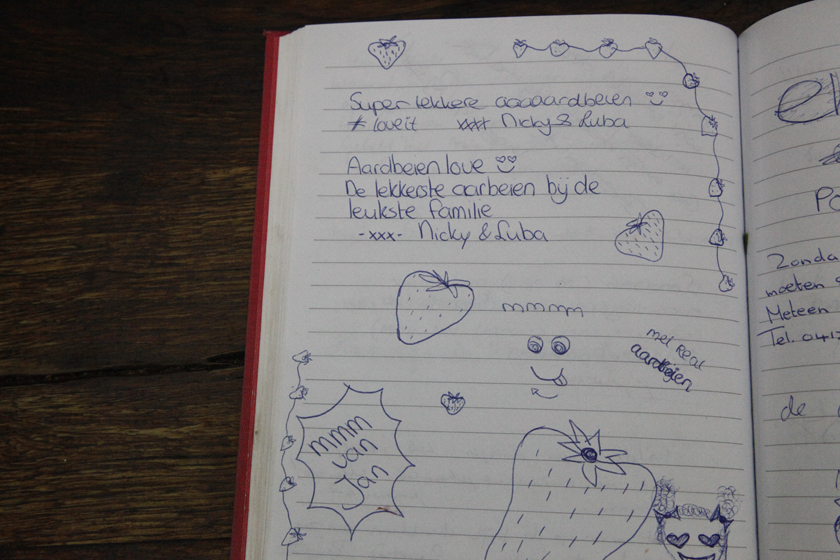 Super lekkere aaaaardbeien
# loveit xxxx Nicky & Luba
Aardbeien love
De lekkerste aarbeien bij de
leukste familie
-xxx- Nicky & Luba
mmmm
met Real
aardbeien
mmm
van
Jan
Zonda
moeten
Meteen
Tel. 0417
de